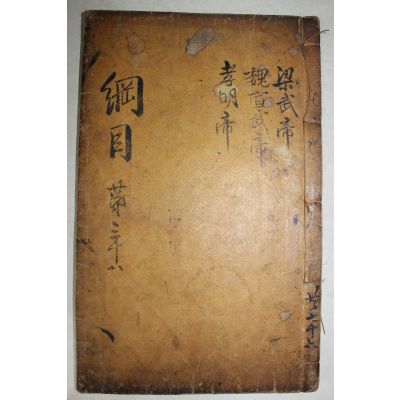 梁武帝
魏宣武帝
孝明帝
綱目
第三十八
共七十六